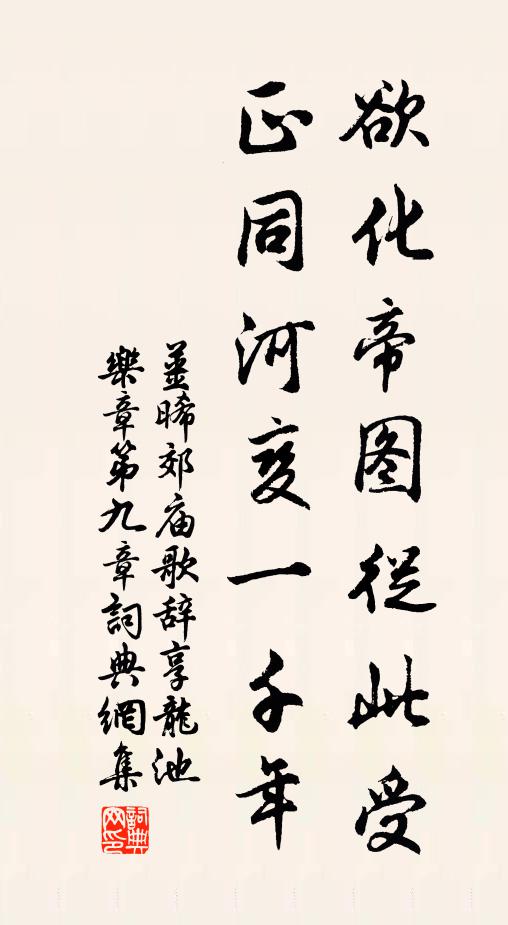 欲化帝图從此受
正同河变一千年
姜晞郊庙歌辞享龍池
樂章第九章詞典網集
詞典网印